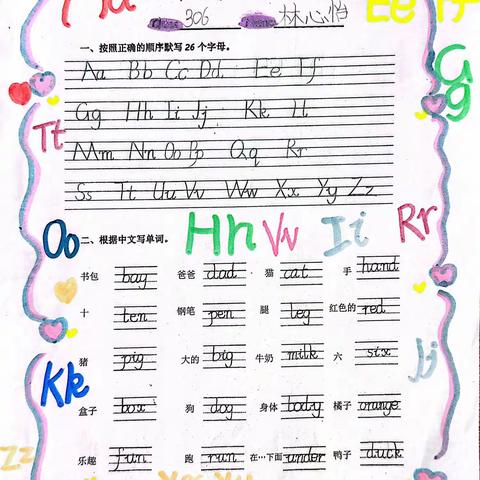 Class 306 林心怡 Ee Ff
一、按照正确的顺序默写26个字母。
Aa Bb Cc Dd Ee Ff
Gg
Gg Hh Ii Jj Kk Ll
Tt
Mm Nn Oo Pp Qq Rr
Ss Tt Uu Vv Ww Xx Yy Zz
Oo Hh Vv Ii Rr
二、根据中文写单词。
书包 bag 爸爸 dad 猫 cat 手 hand
十 ten 钢笔 pen 腿 leg 红色的 red
猪 pig 大的 big 牛奶 milk 六 six
Kk Jj
盒子 box 狗 dog 身体 body 橘子 orange
乐趣 fun 跑 run 在…下面 under 鸭子 duck
Zz Xx Yy